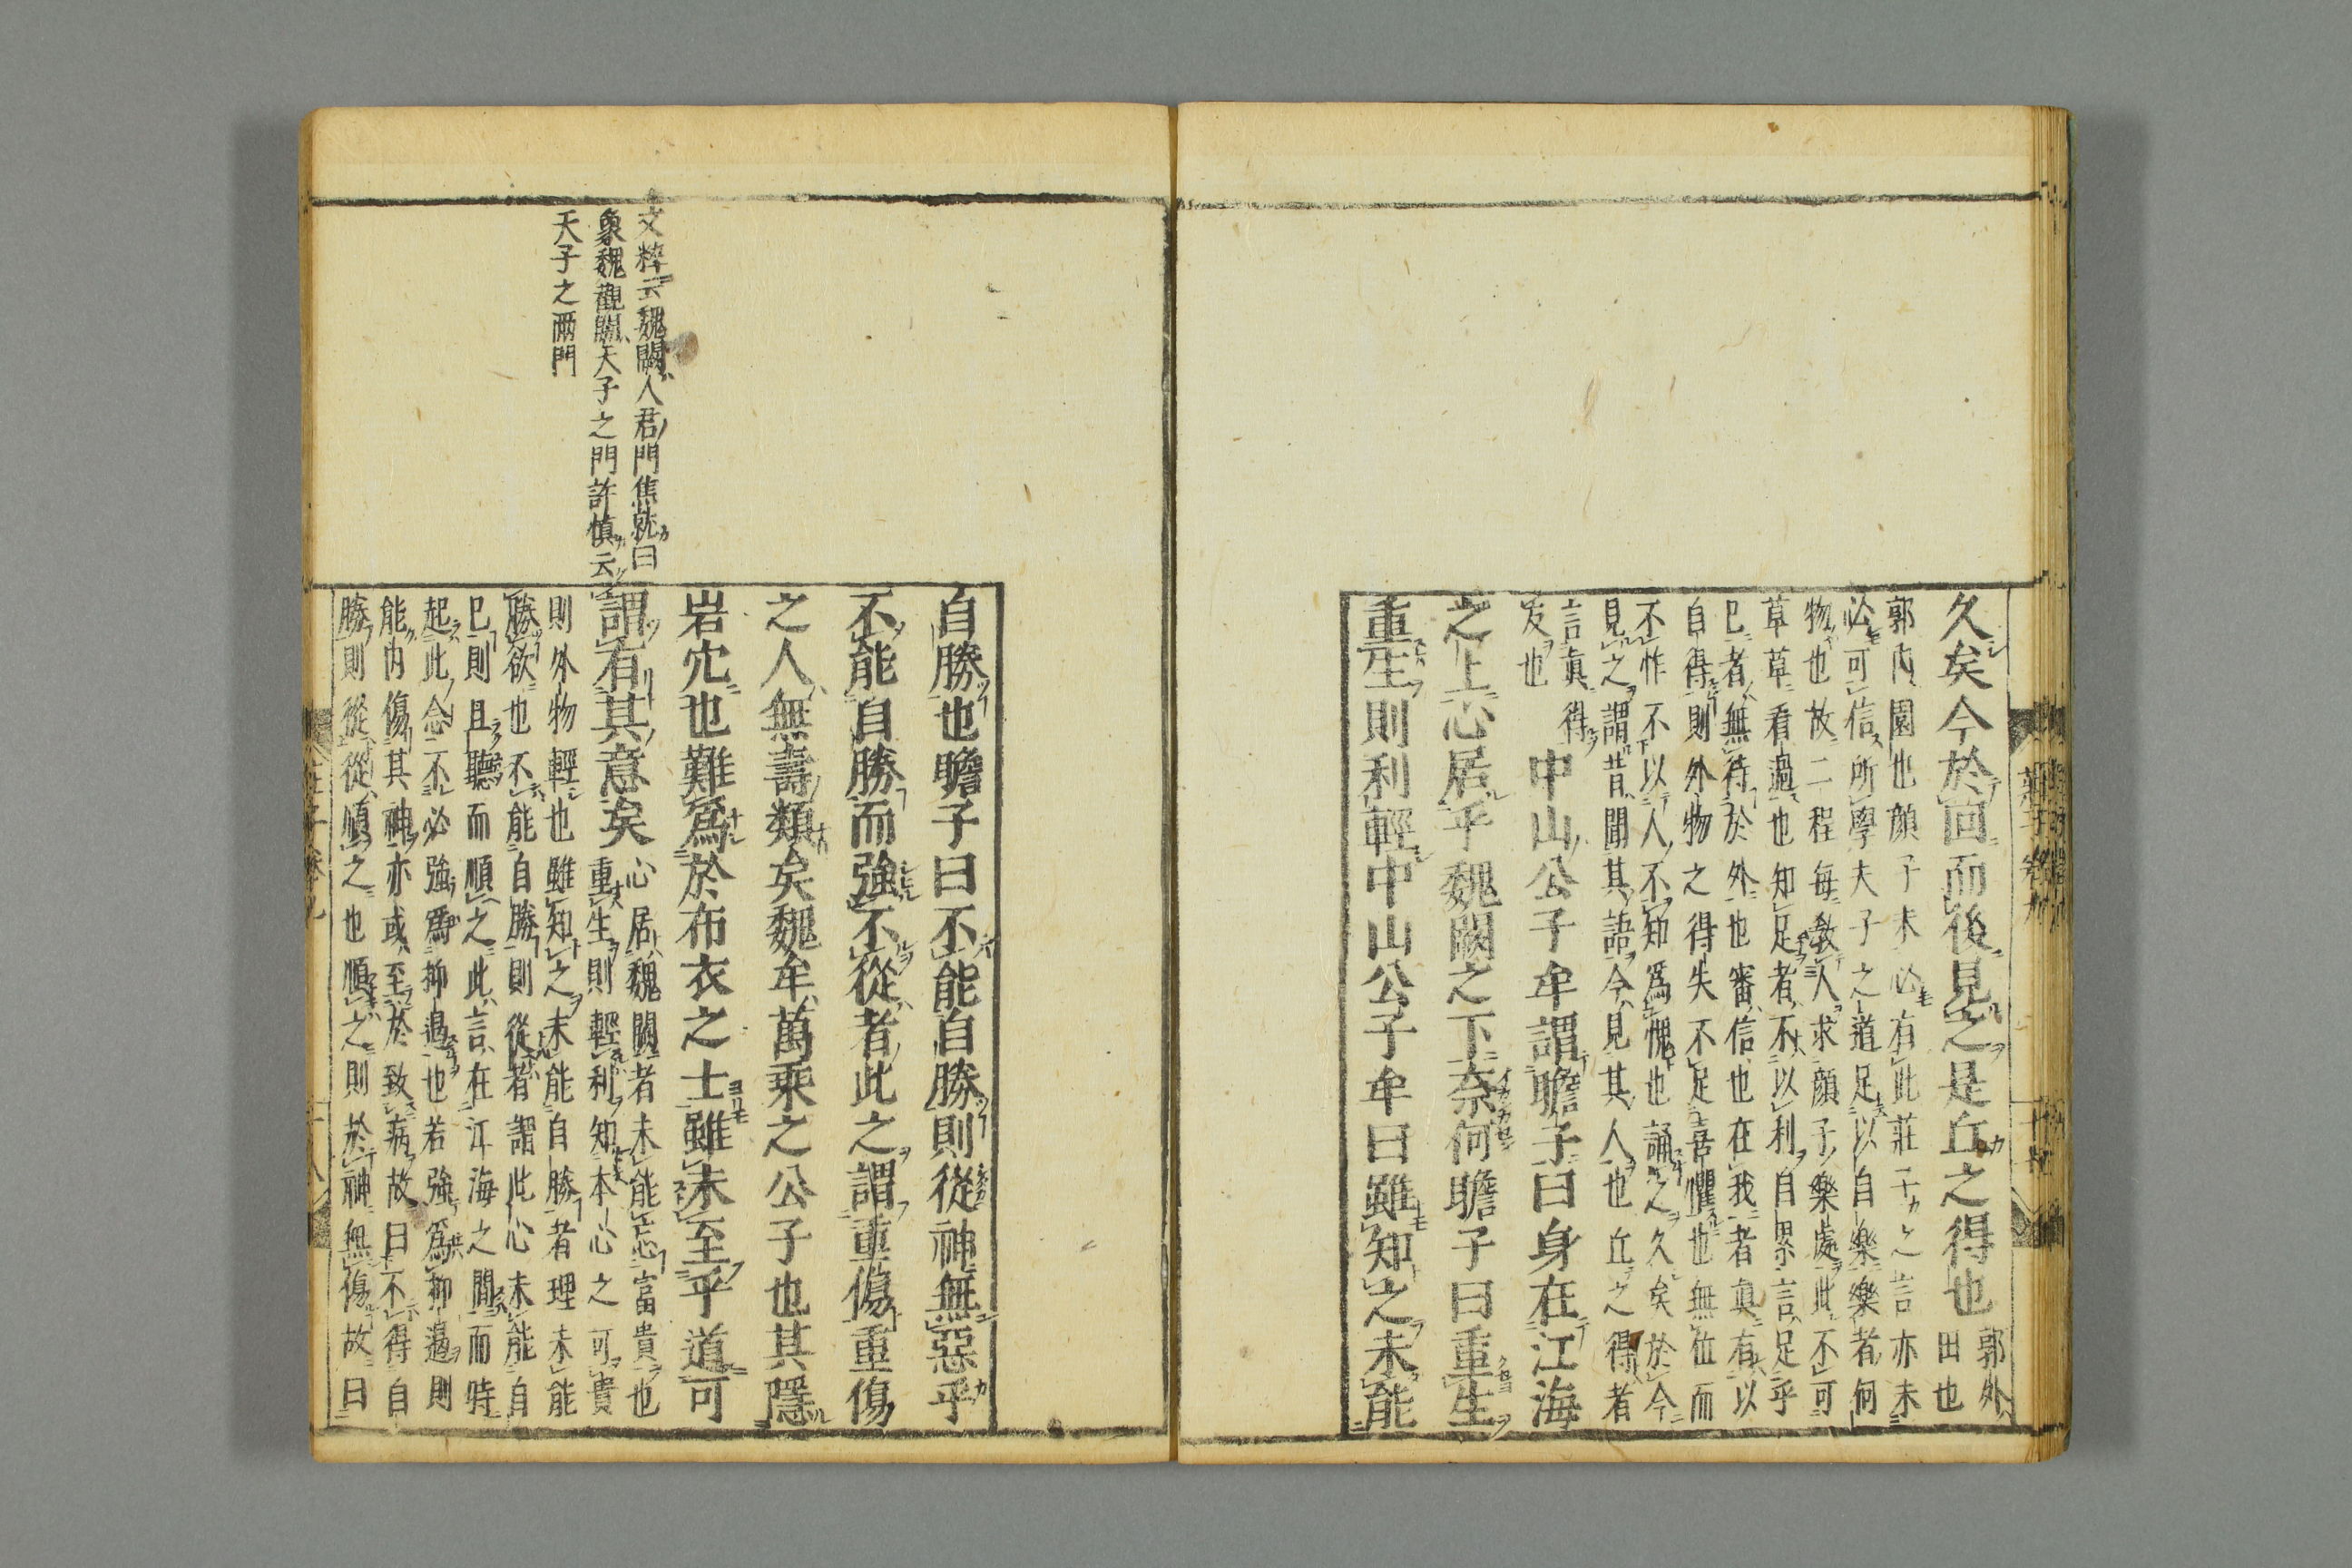 久矣今於回而後見之是丘之得也 郭外
田也
郭内園也顔子未必有此莊子之言亦未
必可信所學夫子之道足以自樂樂者何
物也故二程毎教人求顔子樂處此不可
草草看過也知足者不以利自累言足乎
已者無待於外也審信也在我者眞有以
自得則外物之得失不足喜懼也無位而
不怍不以人不知爲愧也誦之久矣於今
見之謂昔聞其語今見其人也丘之得者
言眞得
友也
中山公子牟謂瞻子曰身在江海
之上心居乎魏闕之下奈何瞻子曰重生
重生則利輕中山公子牟曰雖知之未能
文粹云魏闕人君門焦竑曰
象魏觀闕天子之門許慎云
天子之兩門
自勝也瞻子曰不能自勝則從神無惡乎
不能自勝而強不從者此之謂重傷重傷
之人無壽類矣魏牟萬乘之公子也其隱
岩穴也難爲於布衣之士雖未至乎道可
謂有其意矣
心居魏闕者未能忘富貴也
重生則輕利知本心之可貴
則外物輕也雖知之未能自勝者理未能
勝欲也不能自勝則從者謂此心未能自
已則且聽而順之此言在江海之間而時
起此念不必強爲抑遏也若強爲抑遏則
能内傷其神亦或至於致病故曰不得自
勝則從從順之也順之則於神無傷故曰
莊子卷九